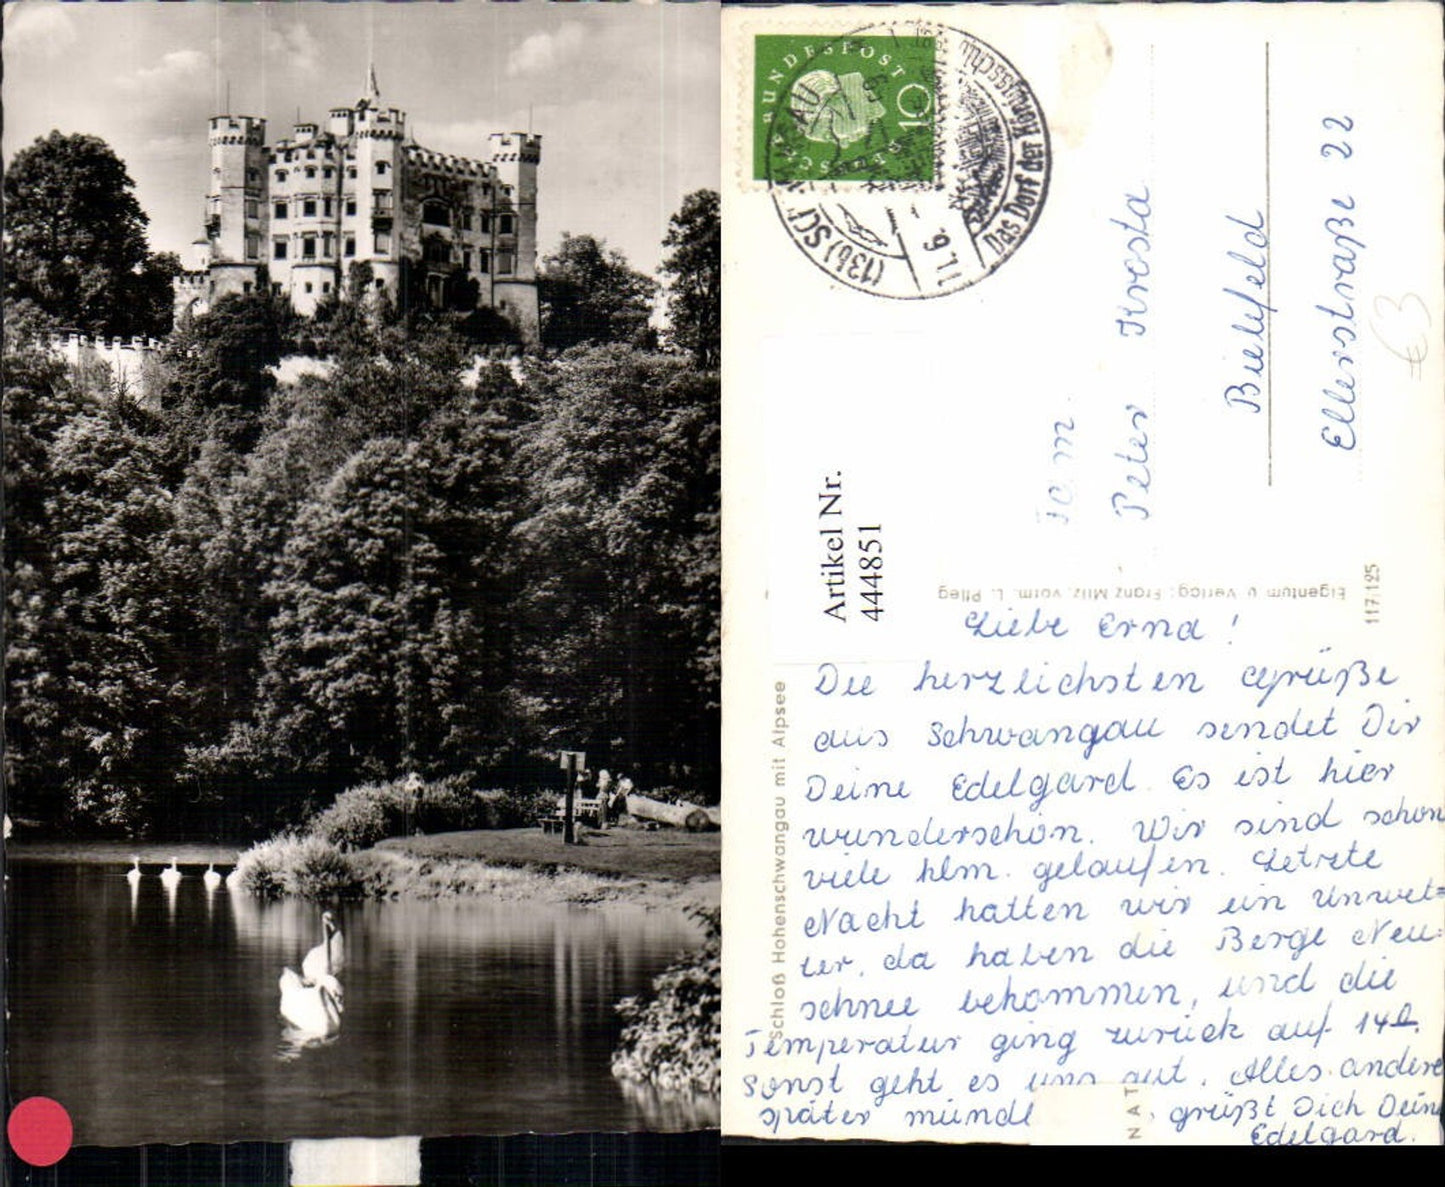 BUNDESPOST
10
(13b) SCHWANGAU
11.6.
Das Dorf der Königsschlösser
Artikel Nr.
444851
Fam.
Peter Krosta
Bielefeld
Ellerstraße 22
€3
Eigentum u Verlag: Franz Milz, vorm. L. Pfleg
117,125
Schloß Hohenschwangau mit Alpsee
Liebe Erna!
Die herzlichsten Grüße
aus Schwangau sendet Dir
Deine Edelgard. Es ist hier
wunderschön. Wir sind schon
viele klm. gelaufen. Letzte
Nacht hatten wir ein Unwet=
ter, da haben die Berge Neu=
schnee bekommen, und die
Temperatur ging zurück auf 14
Sonst geht es uns gut. Alles andere
später münd
grüßt Dich Deine
Edelgard.
NAT